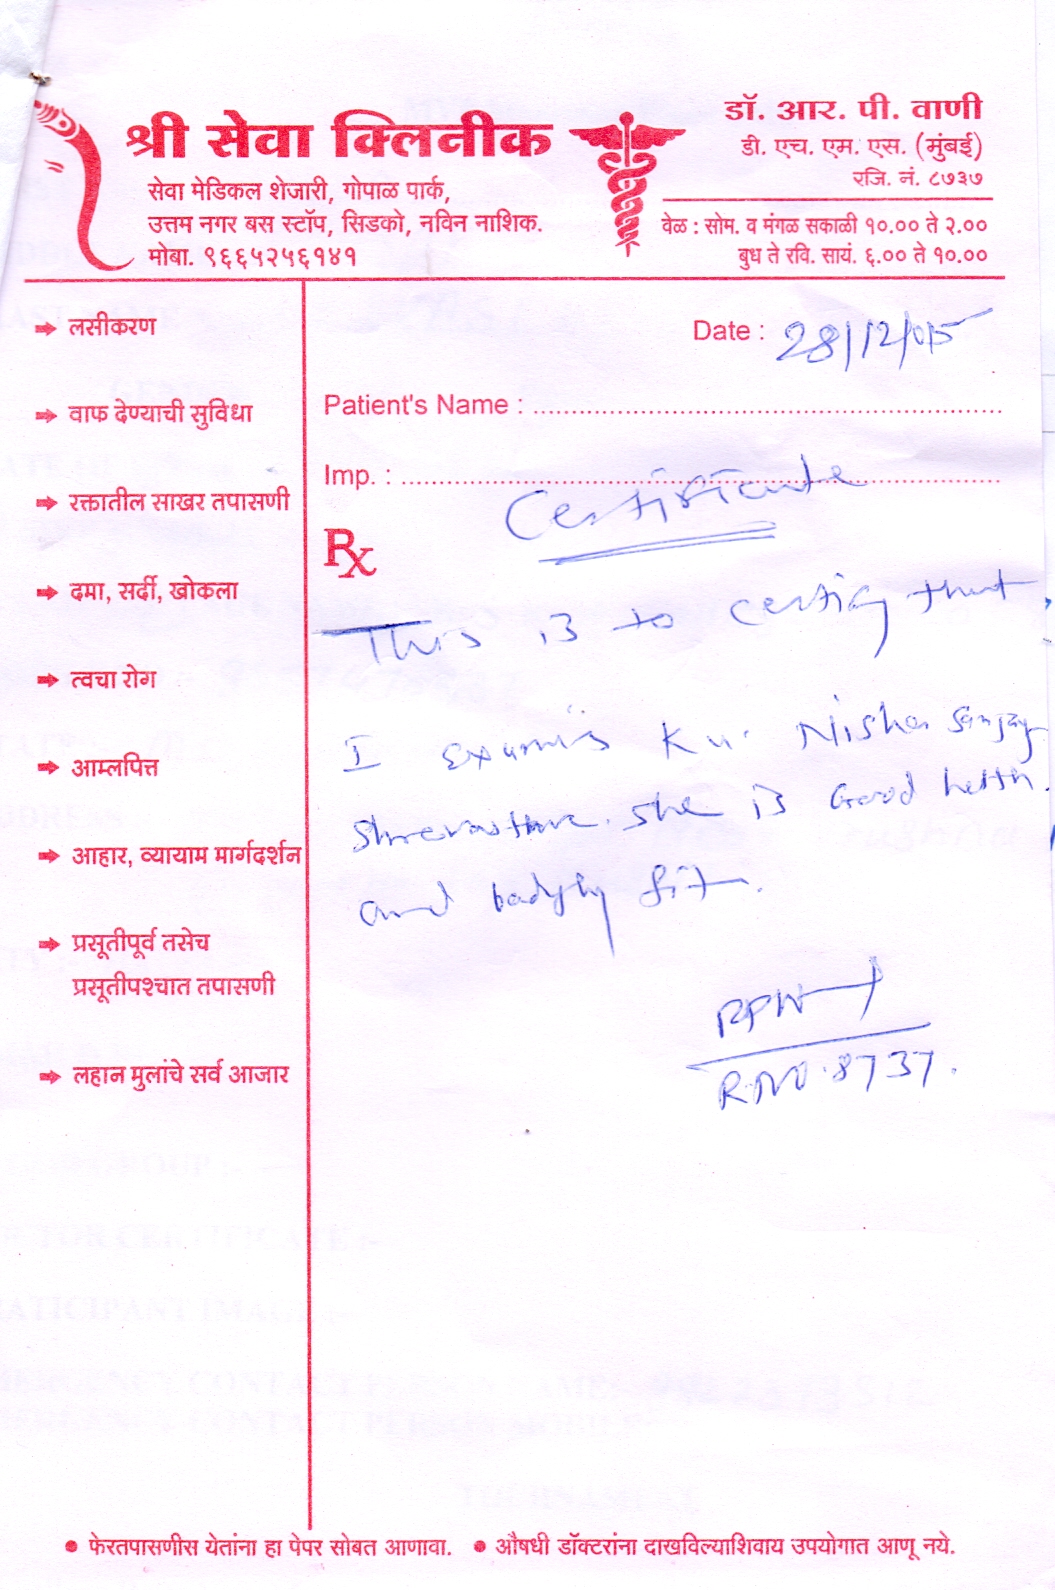 श्री सेवा क्लिनीक
सेवा मेडिकल शेजारी, गोपाळ पार्क,
उत्तम नगर बस स्टॉप, सिडको, नविन नाशिक.
मोबा. ९६६५२५६१४१
डॉ. आर. पी. वाणी
डी. एच. एम. एस. (मुंबई)
रजि. नं. ८७३७
वेळ : सोम. व मंगळ सकाळी १०.०० ते २.००
बुध ते रवि. सायं. ६.०० ते १०.००
लसीकरण
वाफ देण्याची सुविधा
रक्तातील साखर तपासणी
दमा, सर्दी, खोकला
त्वचा रोग
आम्लपित्त
आहार, व्यायाम मार्गदर्शन
प्रसूतीपूर्व तसेच
प्रसूतीपश्चात तपासणी
लहान मुलांचे सर्व आजार
Date : 28/12/015
Patient's Name :
Imp. :
Certificate
Rx
This is to certify that
I Ku. Nisha Sanjay
she is Good
and fit.
R.NO. 8737.
• फेरतपासणीस येतांना हा पेपर सोबत आणावा. • औषधी डॉक्टरांना दाखविल्याशिवाय उपयोगात आणू नये.